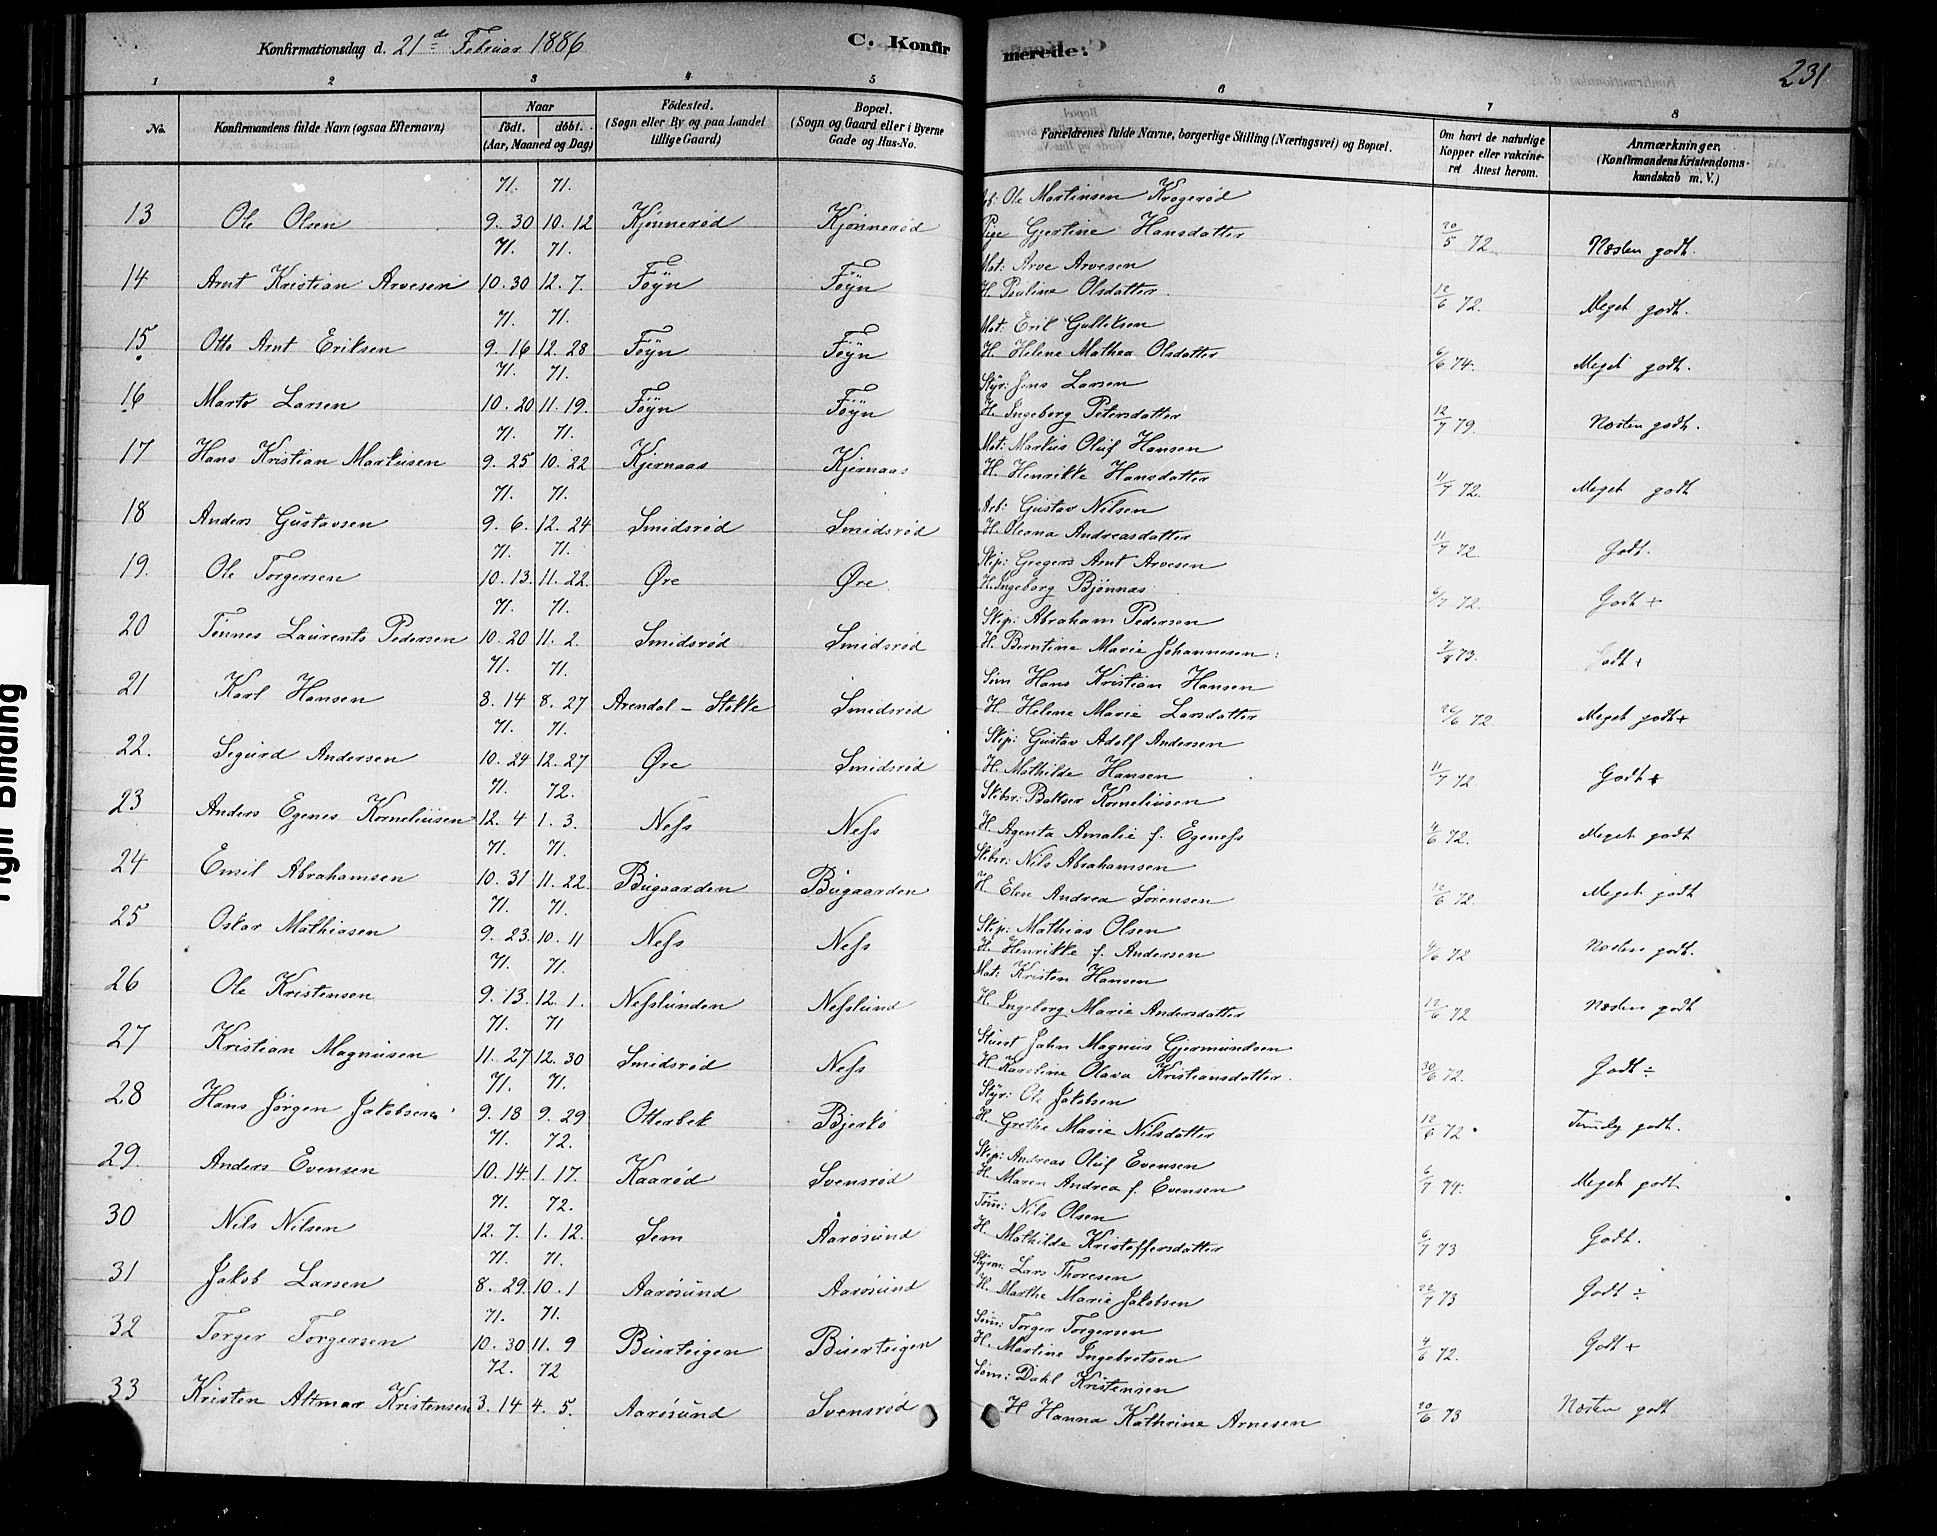 Konfirmationsdag d. 21de Februar 1886 C. Konfirmerede. 231
1 2 3 4 5 6 7 8
No. Konfirmandens fulde Navn (ogsaa Efternavn) Naar födt. döbt. (Aar, Maaned og Dag) Födested. (Sogn eller By og paa Landet tillige Gaard) Bopæl. (Sogn og Gaard eller i Byerne Gade og Hus-No. Forældrenes fulde Navne, borgerlige Stilling (Næringsvei) og Bopæl. Om havt de naturlige Kopper eller vakcineret Attest herom. Anmærkninger. (Konfirmandens Kristendomskundskab m. V.)
71. 71. Arb: Ole Martinsen Krogerød
13 Ole Olsen 9. 30 10. 12 Kjønnerød Kjønnerød Pige Gjertine Hansdatter 20/5 72 Næsten godt.
71. 71. Mat: Arve Arvesen
14 Arnt Kristian Arvesen 10. 30 12. 7. Föyn Föyn H. Pauline Olsdatter 12/6 72. Meget godt.
71. 71. Mat: Erik Gulliksen
15 Otto Arnt Eriksen 9. 16 12. 28 Föyn Föyn H. Helene Mathea Olsdatter 6/6 74. Meget godt.
71. 71. Styr: Jens Larsen
16 Martø Larsen 10. 20 11. 19. Föyn Föyn H. Ingeborg Petersdatter 12/7 79. Næsten godt.
71. 71. Mat: Markus Oluf Hansen
17 Hans Kristian Markusen 9. 25 10. 22 Kjernaas Kjernaas H. Henrikke Hansdatter 11/7 72. Meget godt
71. 71. Arb: Gustav Nilsen
18 Anders Gustavsen 9. 6. 12. 24 Smidsrød Smidsrød H. Oleana Andreasdatter 11/7 72 Godt.
71. 71. Skip: Gregers Arnt Arvesen
19. Ole Torgersen 10. 13. 11. 22 Øre Øre H. Ingeborg Bjønnæs 6/7 72. Godt +
71. 71. Skip: Abraham Pedersen
20 Tønnes Laurents Pedersen 10. 20 11. 2. Smidsrød Smidsrød H. Berntine Marie Johannesen 73. Godt +
71. 71. Søm Hans Kristian Hansen
21 Karl Hansen 3. 14 8. 27 Arendal - Stokke Smidsrød H. Helene Marie Larsdatter 26/6 72 Meget godt +
71. 71. Skip: Gustav Adolf Andersen
22. Sigurd Andersen 10. 24 12. 27 Øre Smidsrød H. Mathilde Hansen 11/7 72. Godt +
71. 72. Skibsr: Baltser Korneliusen
23 Anders Egenes Korneliusen 12. 4 1. 3. Ness Ness H. Agenta Amalie f. Egeness 4/6 72. Meget godt
71. 71. Skibsr: Nils Abrahamsen
24 Emil Abrahamsen 10. 31 11. 22. Bugaarden Bugaarden H. Elen Andrea Sørensen 12/6 72. Meget godt
71. 71. Skip: Mathias Olsen
25 Oskar Mathiasen 9. 23. 10. 11 Ness Ness H. Henrikke f. Andersen 4/6 72 Næsten godt.
71. 71. Mat: Kristen Hansen
26 Ole Kristensen 9. 13. 12. 1. Nesslunden Nesslund H. Ingeborg Marie Andersdatter 12/6 72 Næsten godt
71. 71 Stuert Jahn Magnus Gjermundsen
27 Kristian Magnusen 11. 27 12. 30 Smidsrød Ness H. Karoline Olava Kristiansdatter. 30/6 72. Godt ÷
71. 71. Styr: Ole Jakobsen
28 Hans Jørgen Jakobsen 9. 18 9. 29 Otterbek Bjerkø H. Grethe Marie Nilsdatter 12/6 72. Temmelig godt.
71. 72. Skip: Andreas Oluf Evensen
29. Anders Evensen 10. 14. 1. 17. Kaarød Svensrød H. Maren Andrea f. Evensen 6/7 74. Meget godt
71. 72. Tøm: Nils Olsen
30 Nils Nilsen 12. 7. 1. 12. Sem Aarøsund H. Mathilde Kristoffersdatter 6/7 73 Godt.
71. 71. Styrm: Lars Thoresen
31 Jakob Larsen 8. 29. 10. 1 Aarøsund Aarøsund H. Marthe Marie Jakobsen 22/7 73 Godt ÷
71. 71. Søm: Torger Torgersen
32 Torger Torgersen 10. 30 11. 9 Buerteigen Buerteigen H. Martine Ingebretsen 4/6 72. Godt +
72. 72 Søm: Dahl Kristensen
33 Kristen Altmar Kristensen 3. 14 4. 5. Aarøsund Svensrød H Hanna Kathrine Arnesen 20/6 73 Næsten godt
Tight Binding